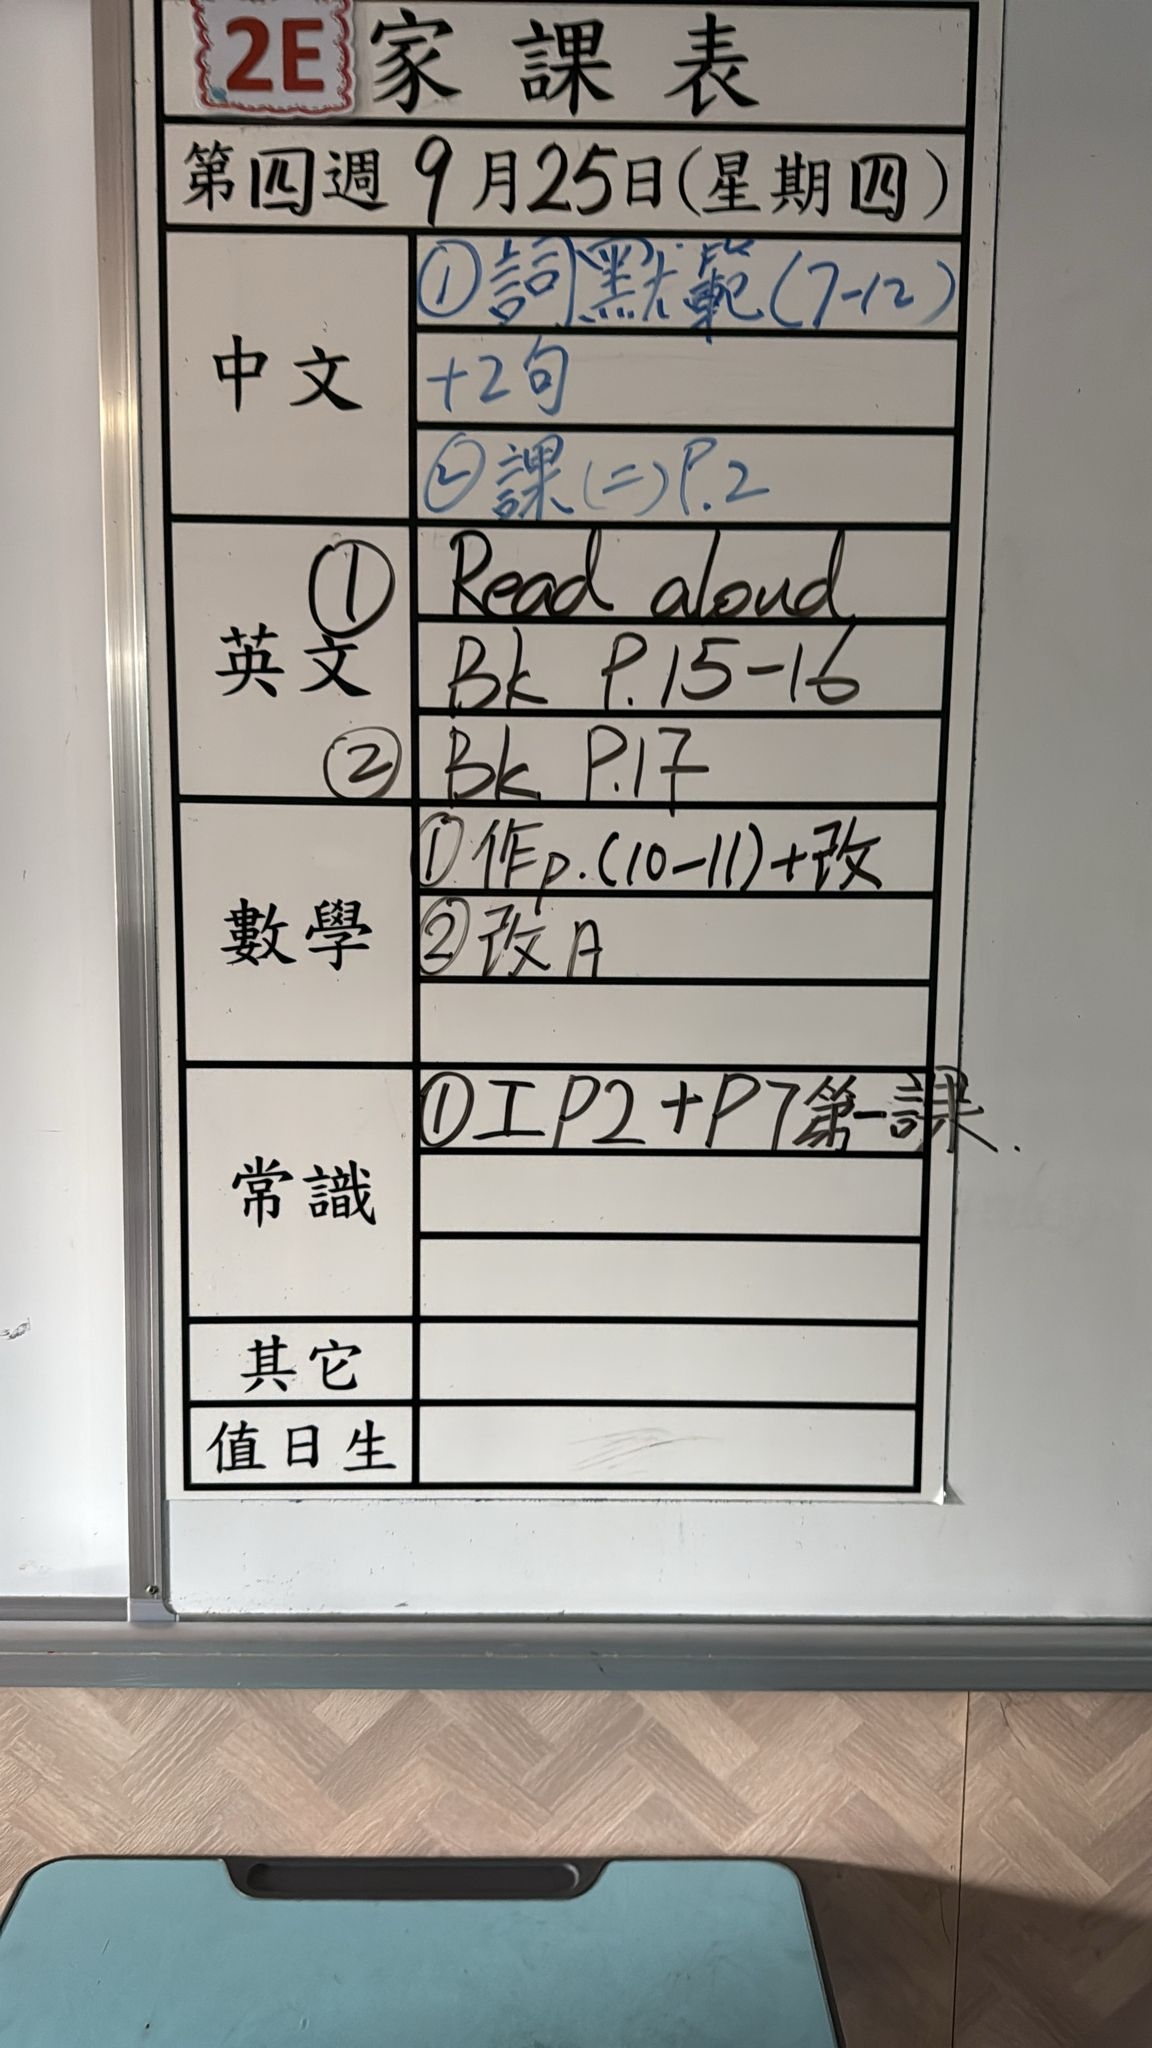 2E 家課表
第四週 9月25日(星期四)
中文
①詞默範(7-12)
+2句
②課(二)P.2
英文
① Read aloud
Bk P.15-16
② Bk P.17
數學
①作p.(10-11)+改
②改A
常識
①工P2+P7第一課.
其它
值日生